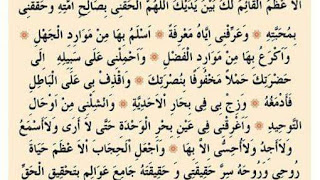 اَلْاَ عْظَمُ الْقَائِمُ لَكَ بَيْنَ يَدَيْكَ اَللّٰهُمَّ اَلْحِقْنِى بِصَالِحِ اُمَّتِهِ وَحَقِّقْنِى
بِمَحَبَّتِهِ ۞ وَعَرِّفْنِى اِيَّاهُ مَعْرِفَةً ۞ اَسْلَمُ بِهَا مِنْ مَوَارِدِ الْجَهْلِ
۞ وَاَكْرَعُ بِهَا مِنْ مَوَارِدِ الْفَضْلِ ۞ وَاحْمِلْنِى عَلٰى سَبِيلِهِ اِلٰى
حَضْرَتِكَ حَمْلًا مَحْفُوفًا بِنُصْرَتِكَ ۞ وَاقْذِفْ بِى عَلَى الْبَاطِلِ
فَاَدْمَغَهُ ۞ وَزُجَّ بِى فِى بِحَارِ الْاَحَدِيَّةِ ۞ وَانْشُلْنِى مِنْ اَوْحَالِ
التَّوْحِيدِ ۞ وَاَغْرِقْنِى فِى عَيْنِ بَحْرِ الْوَحْدَةِ حَتّٰى لَا اَرٰى وَلَااَسْمَعُ
وَلَااَجِدُ وَلَااُحِسُّ اِلَّا بِهَا ۞ وَاجْعَلِ الْحِجَابَ الْاَ عْظَمَ حَيَاةَ
رُوحِى وَرُوحُهُ سِرَّ حَقِيقَتِى وَ حَقِيقَتُهُ جَامِعَ عَوَالِمِى بِتَحْقِيقِ الْحَقِّ